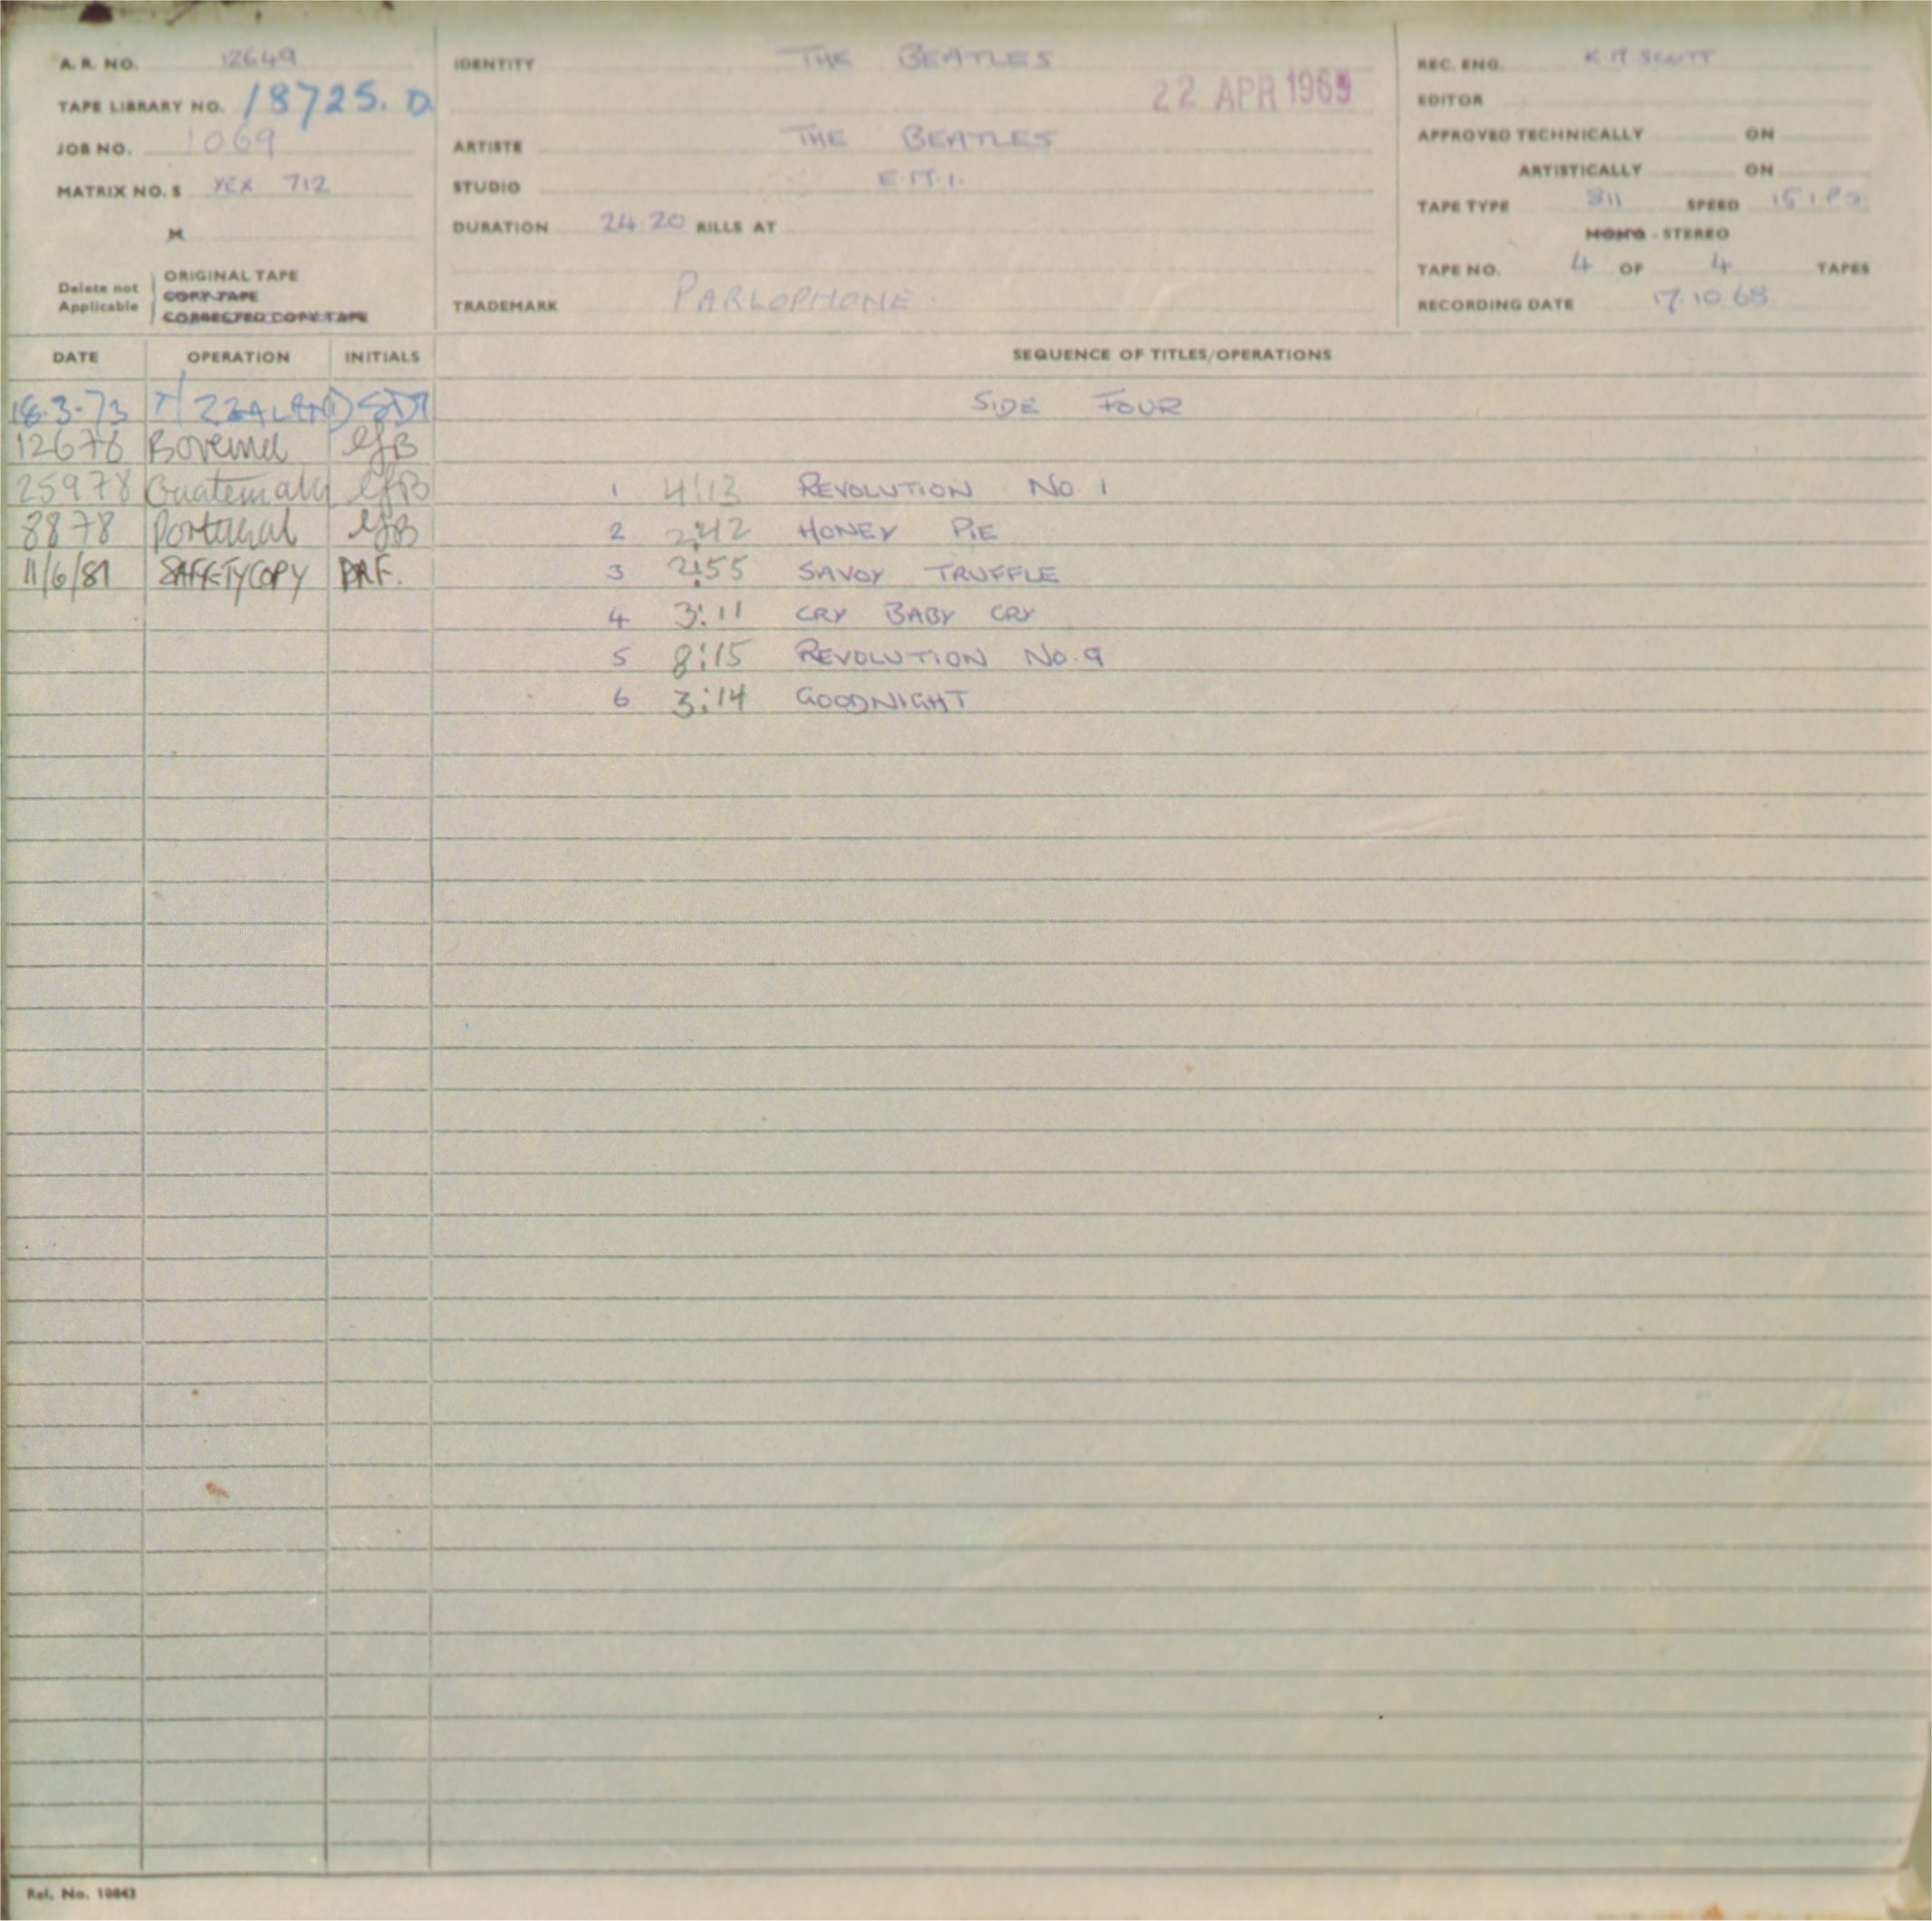 A. R. NO. 12649
TAPE LIBRARY NO. 18725. D
JOB NO. 1069
MATRIX NO. S YEX 712
M
Delete not Applicable
ORIGINAL TAPE
COPY TAPE
CORRECTED COPY TAPE
IDENTITY THE BEATLES
22 APR 1969
ARTISTE THE BEATLES
STUDIO E.M.I.
DURATION 24.20 RILLS AT
TRADEMARK PARLOPHONE.
REC. ENG. K A SCOTT
EDITOR
APPROVED TECHNICALLY ON
ARTISTICALLY ON
TAPE TYPE 811 SPEED 15 IPS
MONO - STEREO
TAPE NO. 4 OF 4 TAPES
RECORDING DATE 17.10.68
DATE OPERATION INITIALS SEQUENCE OF TITLES/OPERATIONS
18.3.73 N/ZEALAND SIDE FOUR
12676 Bovema GJB
25978 Guatemala GJB 1 4:13 REVOLUTION No. 1
8878 Portugal GJB 2 2:42 HONEY PIE
11/6/81 SAFETY COPY PRF. 3 2:55 SAVOY TRUFFLE
4 3:11 CRY BABY CRY
5 8:15 REVOLUTION No. 9
6 3:14 GOODNIGHT
Ref. No. 10843